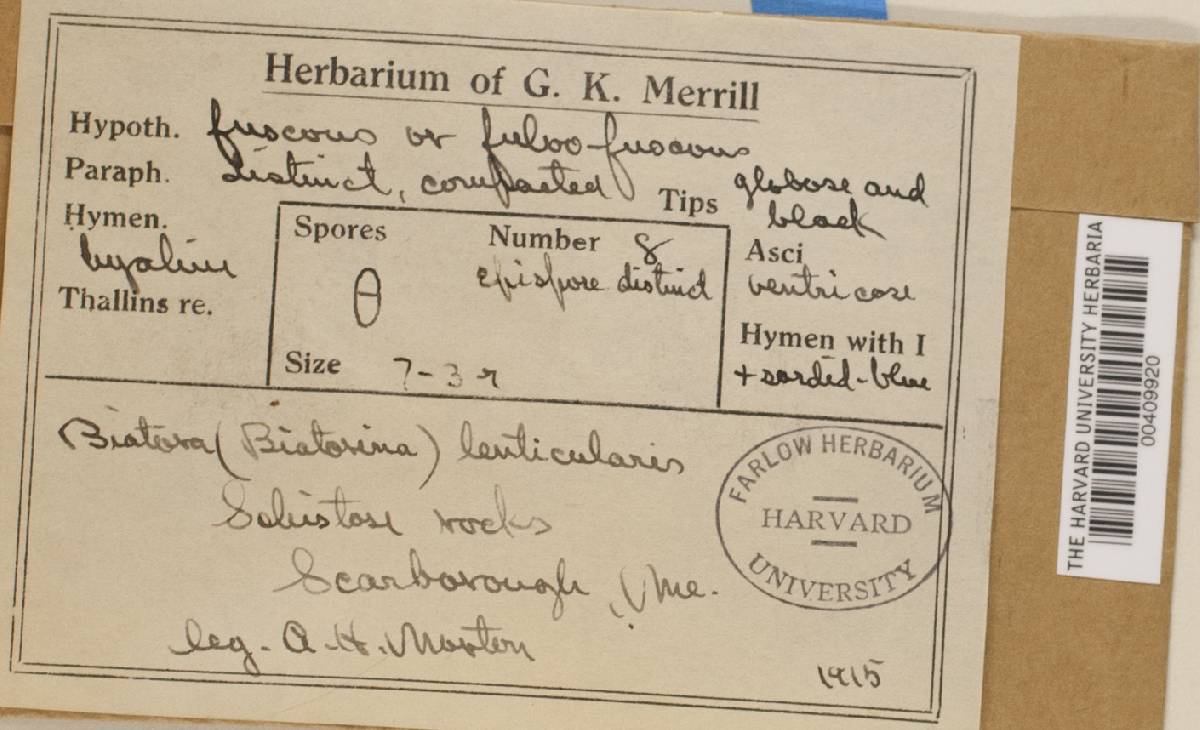 Herbarium of G. K. Merrill
Hypoth. fuscous or fulvo-fuscous
Paraph. distinct, compacted Tips globose and black
Hymen. hyaline
Spores
Number 8
epispore distinct
Size 7-3
Asci ventricose
Thallins re.
Hymen with I
+ sordid-blue
Biatora (Biatorina) lenticularis
Schistose rocks
Scarborough, Me.
leg. A. H. Norton
1915
FARLOW HERBARIUM
HARVARD
UNIVERSITY
THE HARVARD UNIVERSITY HERBARIA
00409920